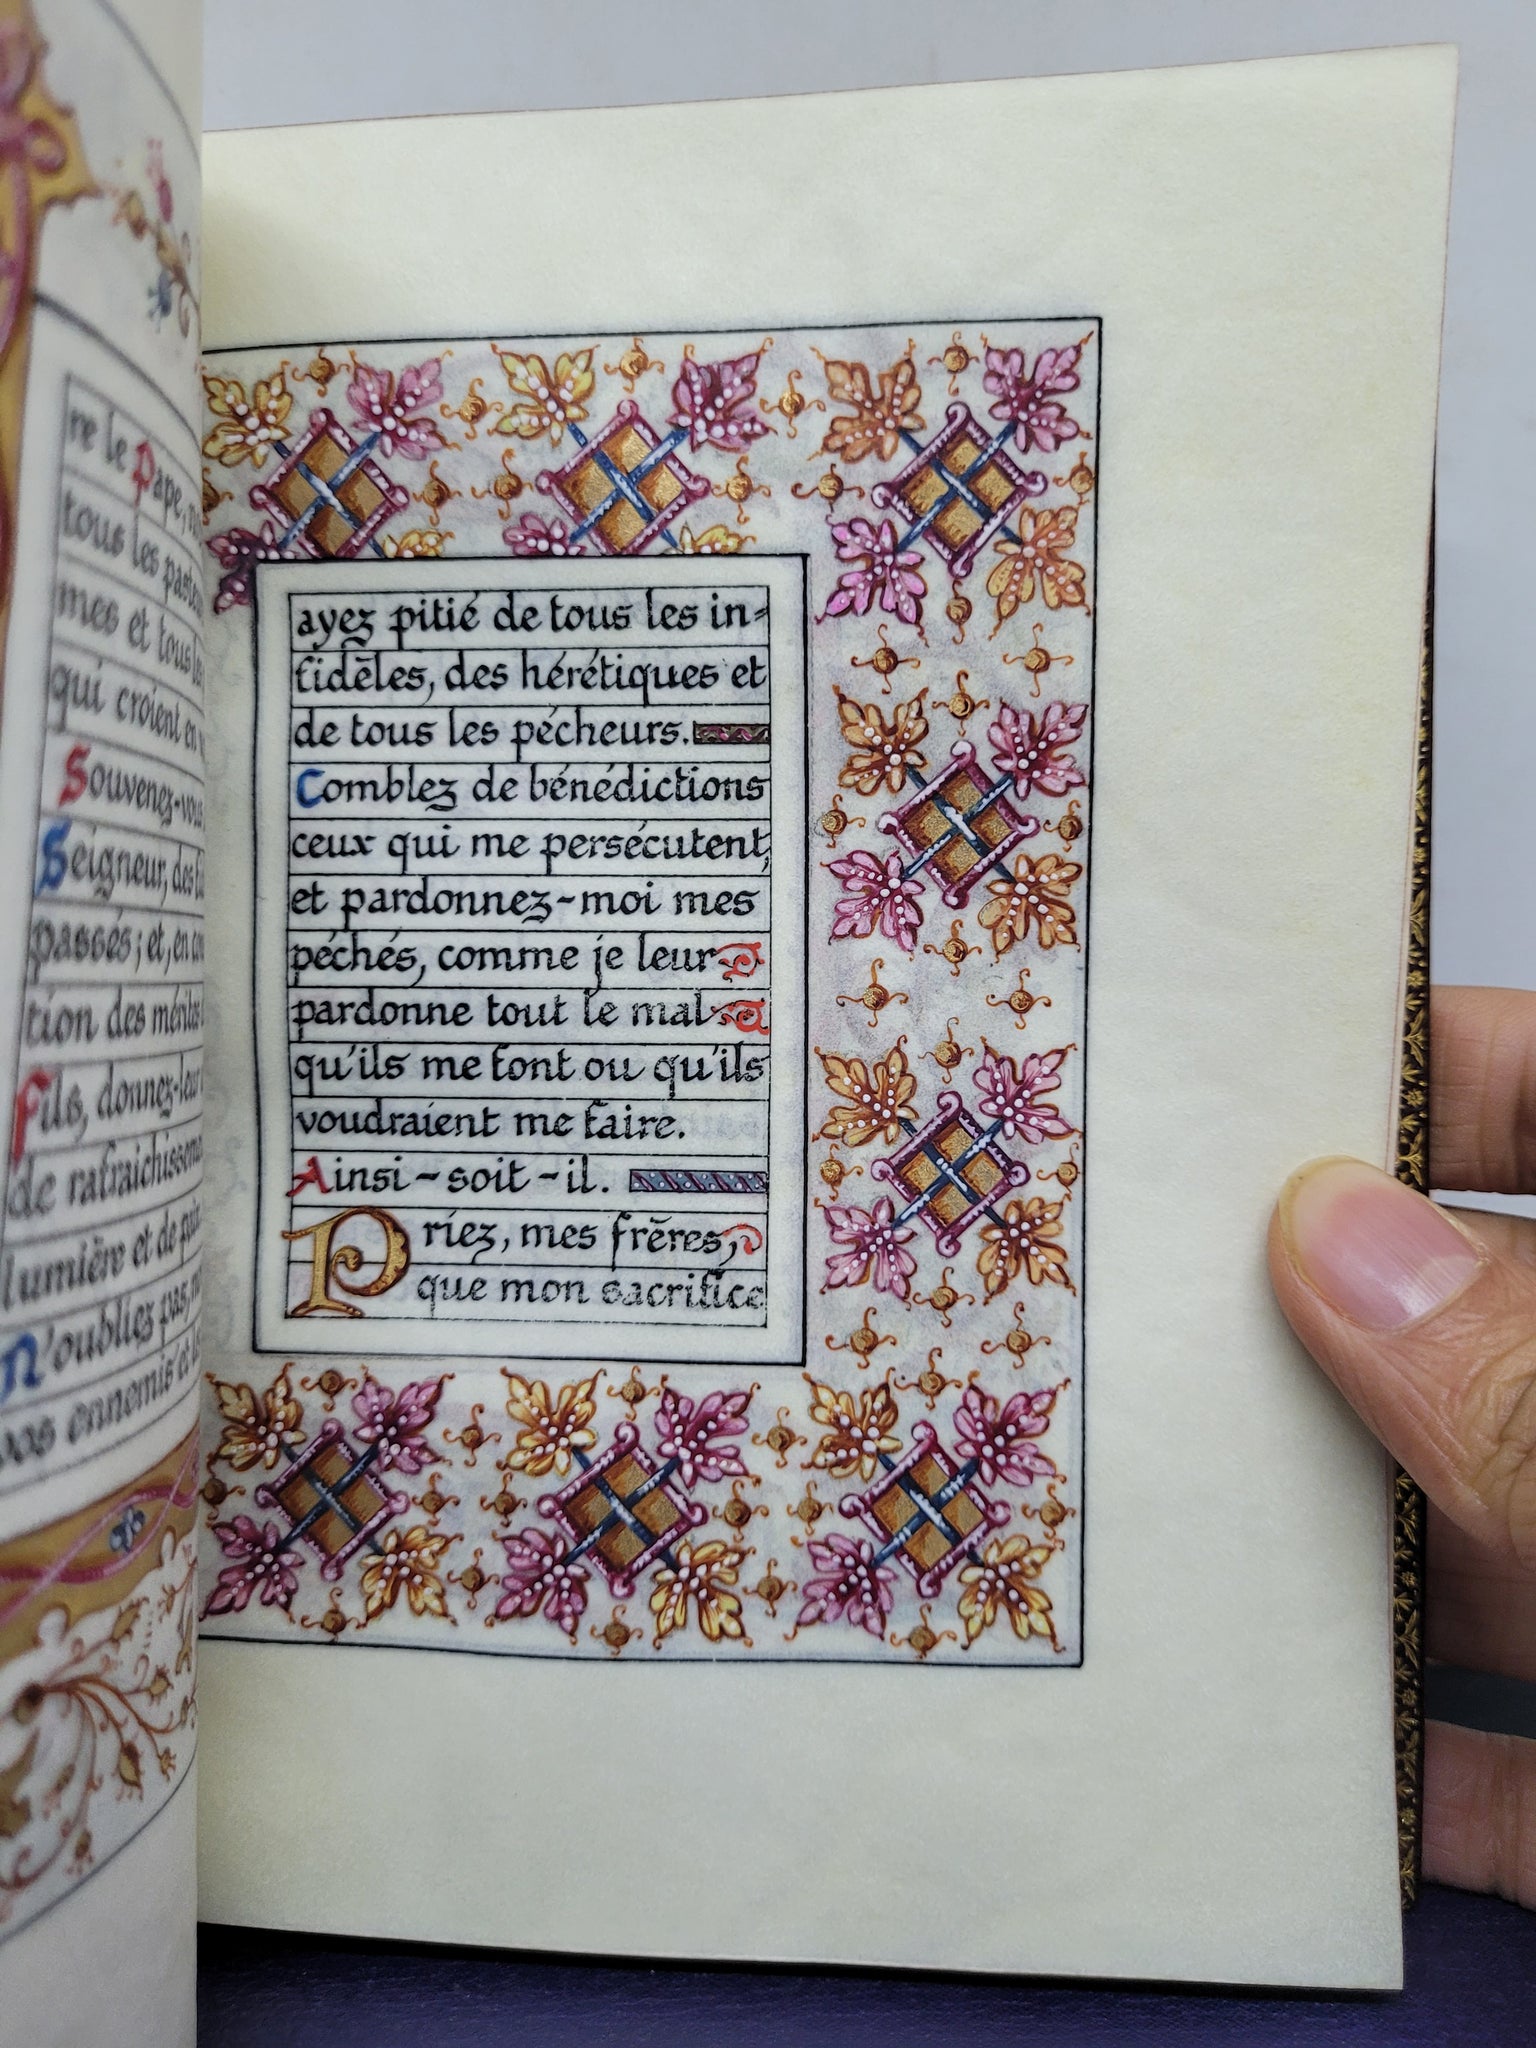 re le Pape,
tous les
mes et tous
qui croient en
Souvenez-vous
Seigneur, des
passés; et, en
tion des mérites
Fils, donnez-leur
de
lumière et de paix
N'oubliez pas,
ennemis et
ayez pitié de tous les in=
fidèles, des hérétiques et
de tous les pécheurs.
Comblez de bénédictions
ceux qui me persécutent,
et pardonnez-moi mes
péchés, comme je leur
pardonne tout le mal
qu'ils me font ou qu'ils
voudraient me faire.
Ainsi-soit-il.
Priez, mes frères,
que mon sacrifice